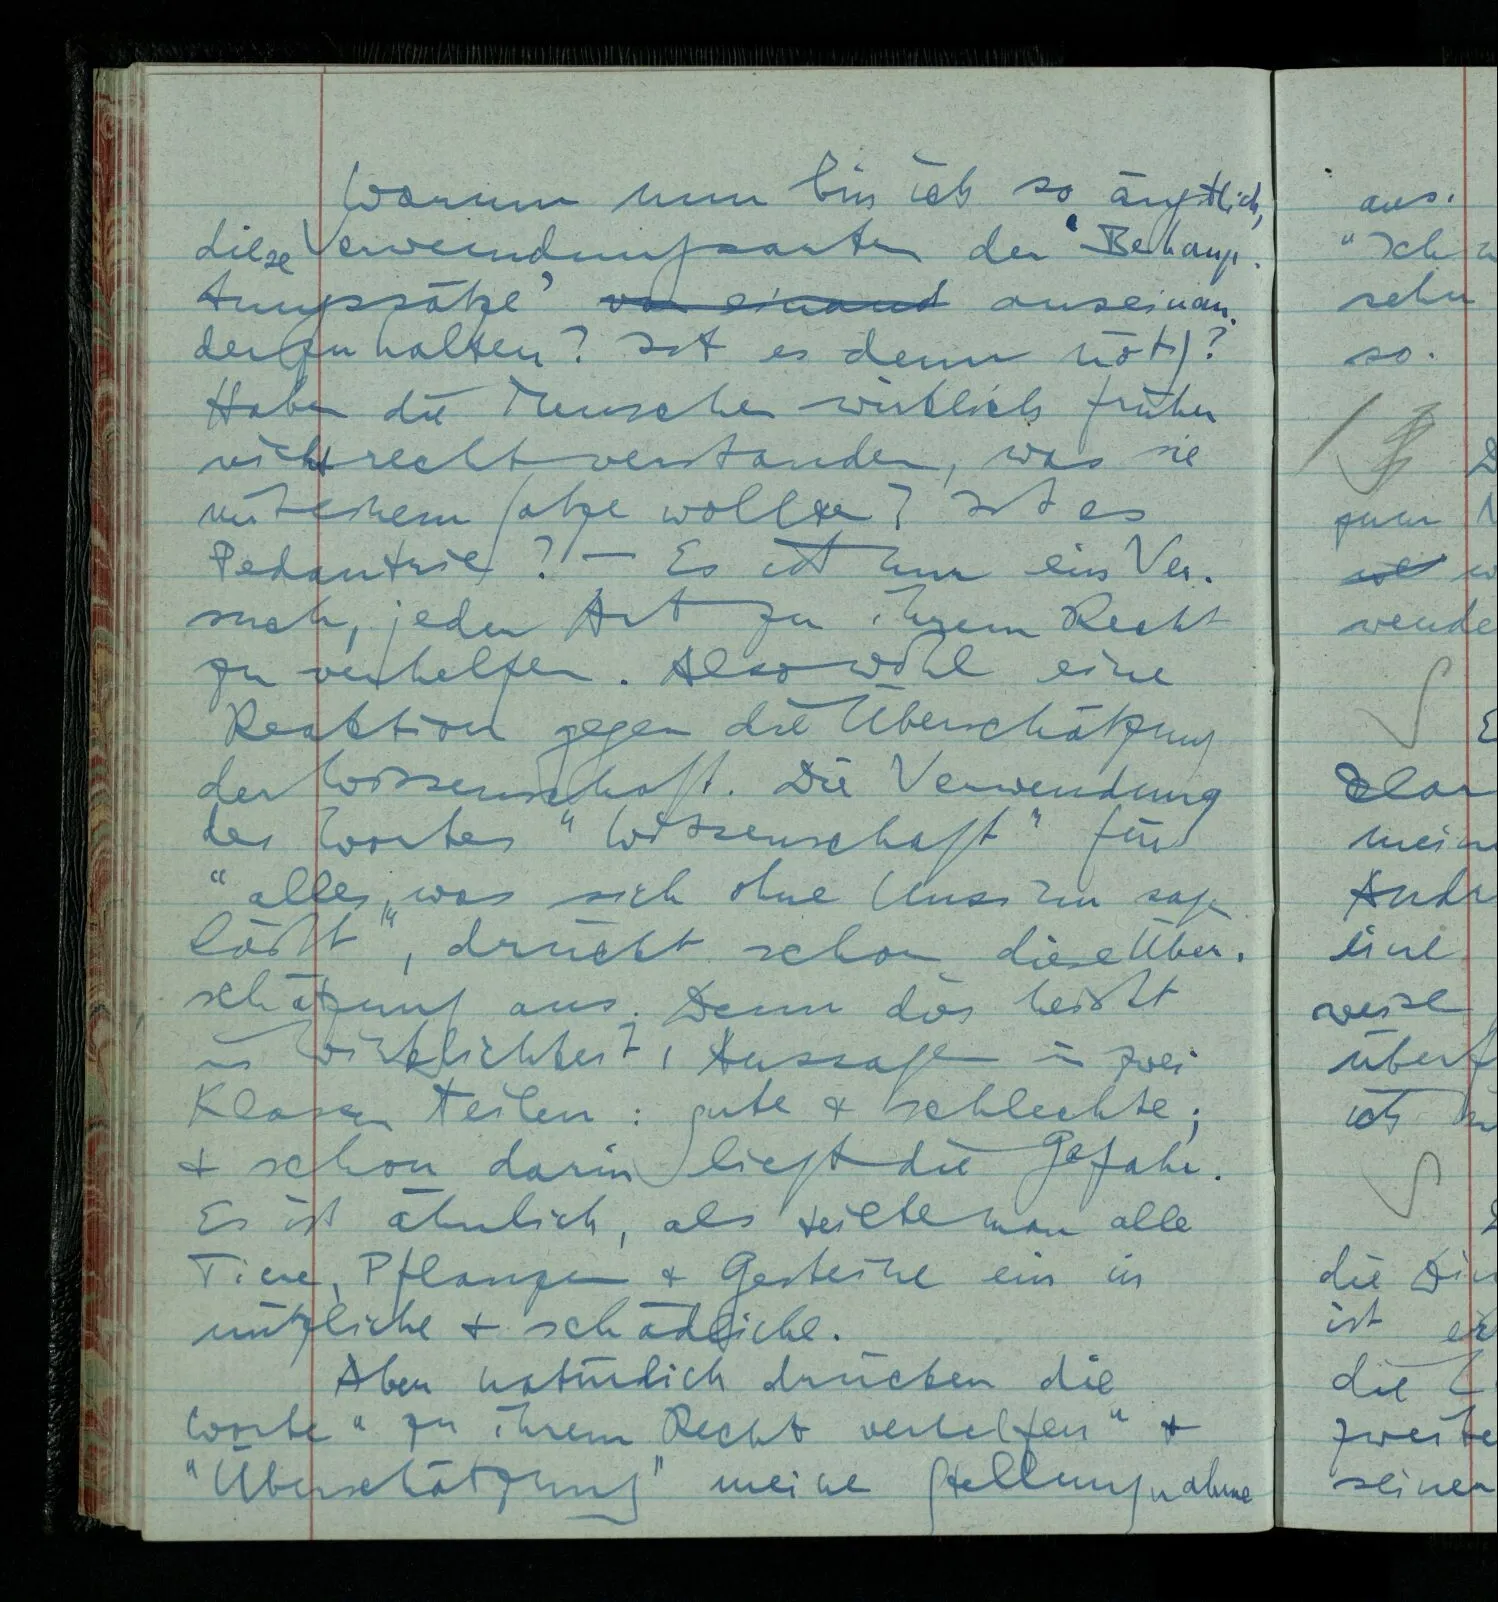 Warum nun bin ich so ängstlich,
diese Verwendungsarten der 'Behaup-
tungssätze' von einand auseinan-
derzuhalten? Ist es denn nötig?
Haben die Menschen wirklich früher
nicht recht verstanden, was sie
mit einem Satze wollten? Ist es
Pedantrie? — Es ist nur ein Ver-
such, jeder Art zu ihrem Recht
zu verhelfen. Also wohl eine
Reaktion gegen die Überschätzung
der Wissenschaft. Die Verwendung
des Wortes "Wissenschaft" für
"alles, was sich ohne Unsinn sagen
läßt", drückt schon diese Über-
schätzung aus. Denn das heißt
in Wirklichkeit, Aussagen in zwei
Klassen teilen: gute & schlechte;
& schon darin liegt die Gefahr.
Es ist ähnlich, als teilte man alle
Tiere, Pflanzen & Gesteine ein in
nützliche & schädliche.
Aber natürlich drücken die
Worte "zu ihrem Recht verhelfen" &
"Überschätzung" meine Stellungnahme
aus.
"Ich
sehn
so.
zum
wende
mein
eine
weise
ich
die
ist
die
zweite
seiner